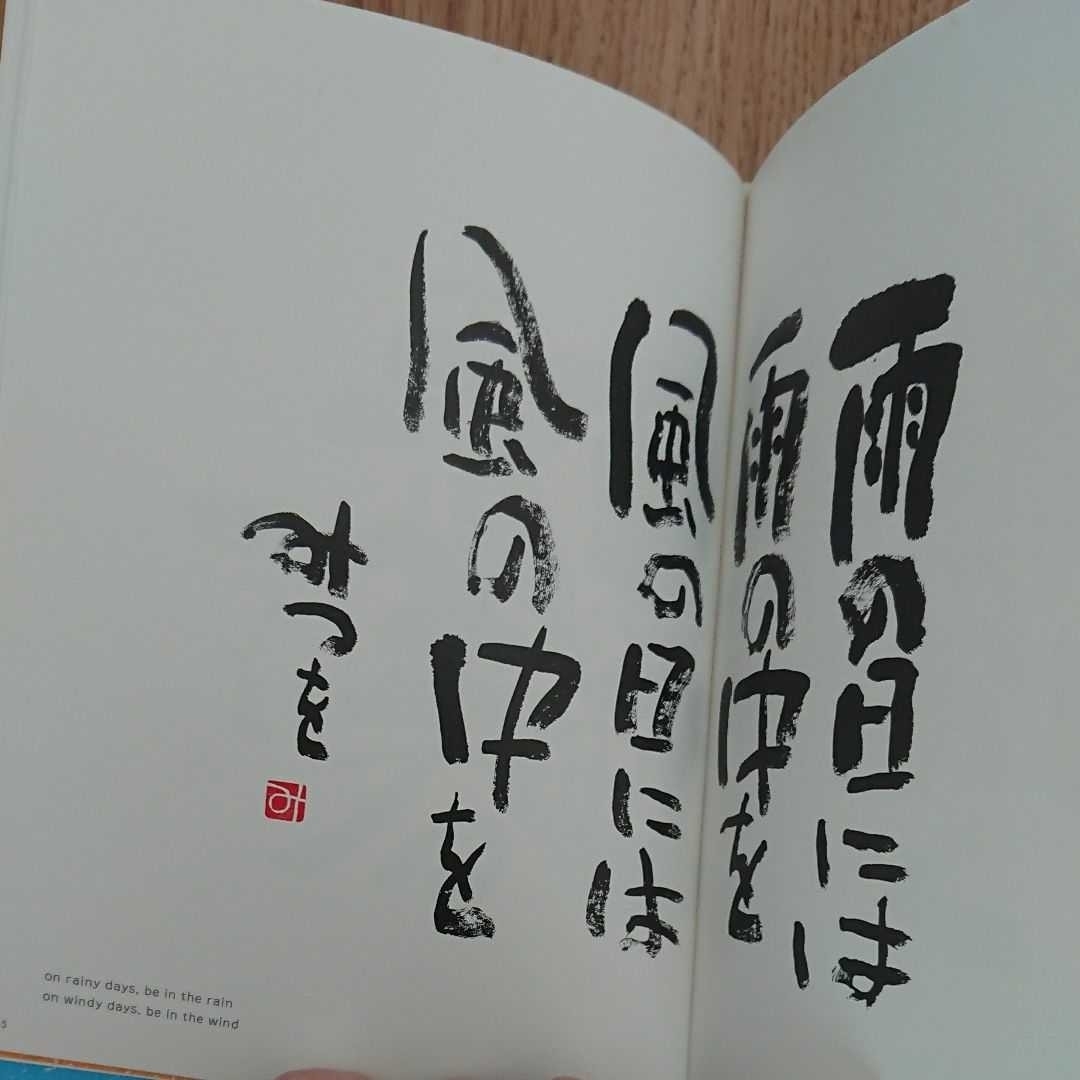 雨の日には
雨の中を
風の日には
風の中を
みつを
み
on rainy days, be in the rain
on windy days, be in the wind
5